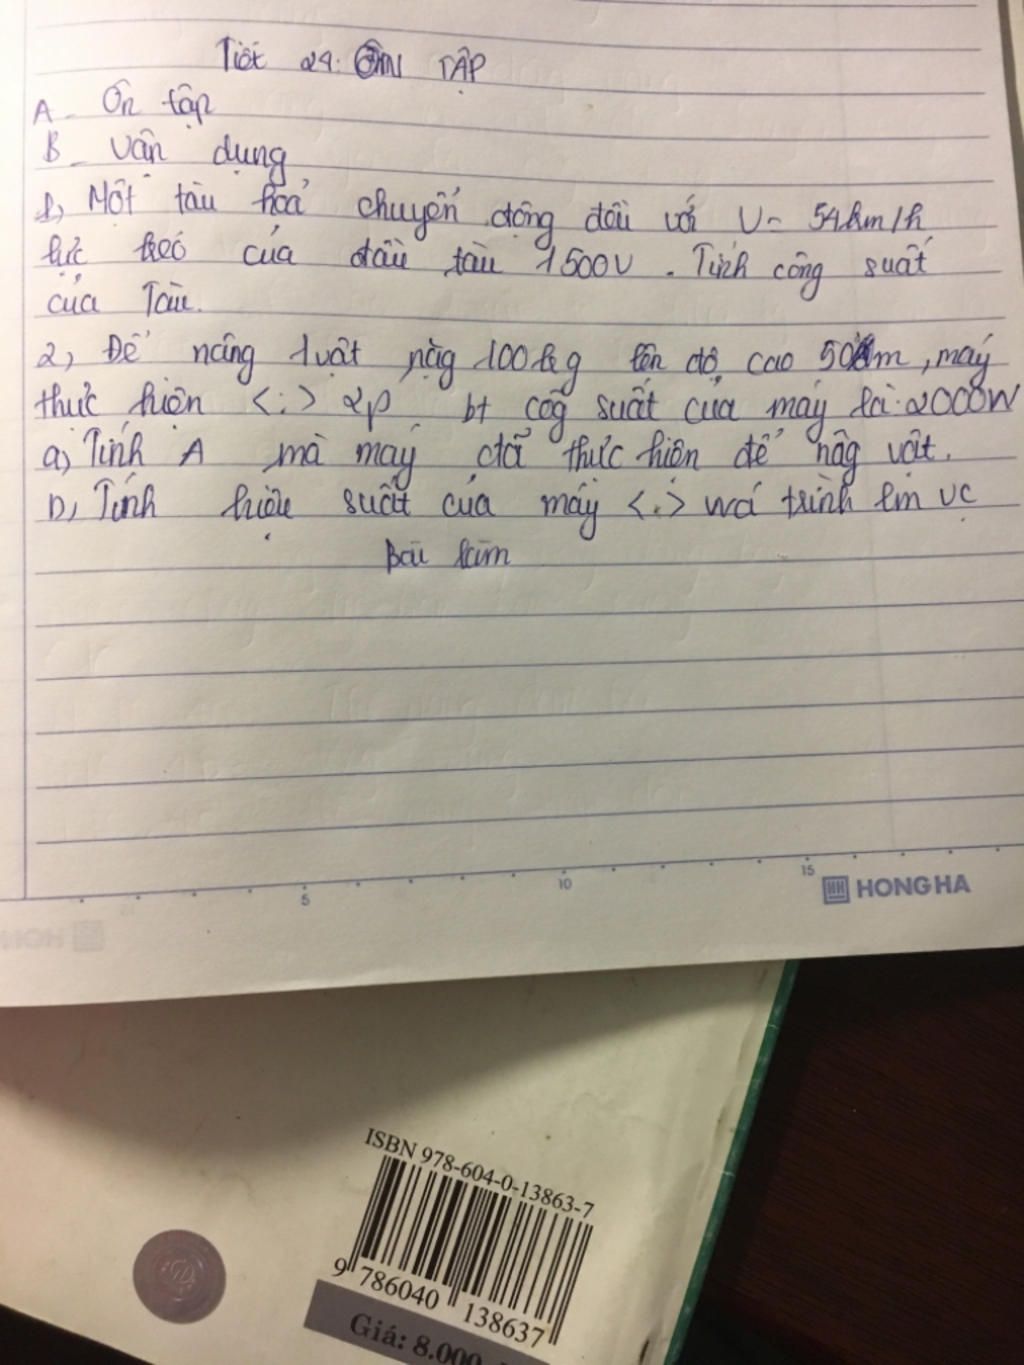 Tiết 24: ÔN TẬP
A - Ôn tập
B - Vận dụng
1, Một tàu hoả chuyển động đều với V = 54km/h
lực kéo của đầu tàu 1500N. Tính công suất
của Tàu.
2, Để nâng 1 vật nặg 100kg lên độ cao 50m, máy
thực hiện <.> 2p bt côg suất của máy là: 2000W
a, Tính A mà máy đã thực hiện để nâg vật.
b, Tính hiệu suất của máy <.> wá trình lm vc
Bài làm
5
10
15
HONG HA
ISBN 978-604-0-13863-7
9 786040 138637
Giá: 8.000